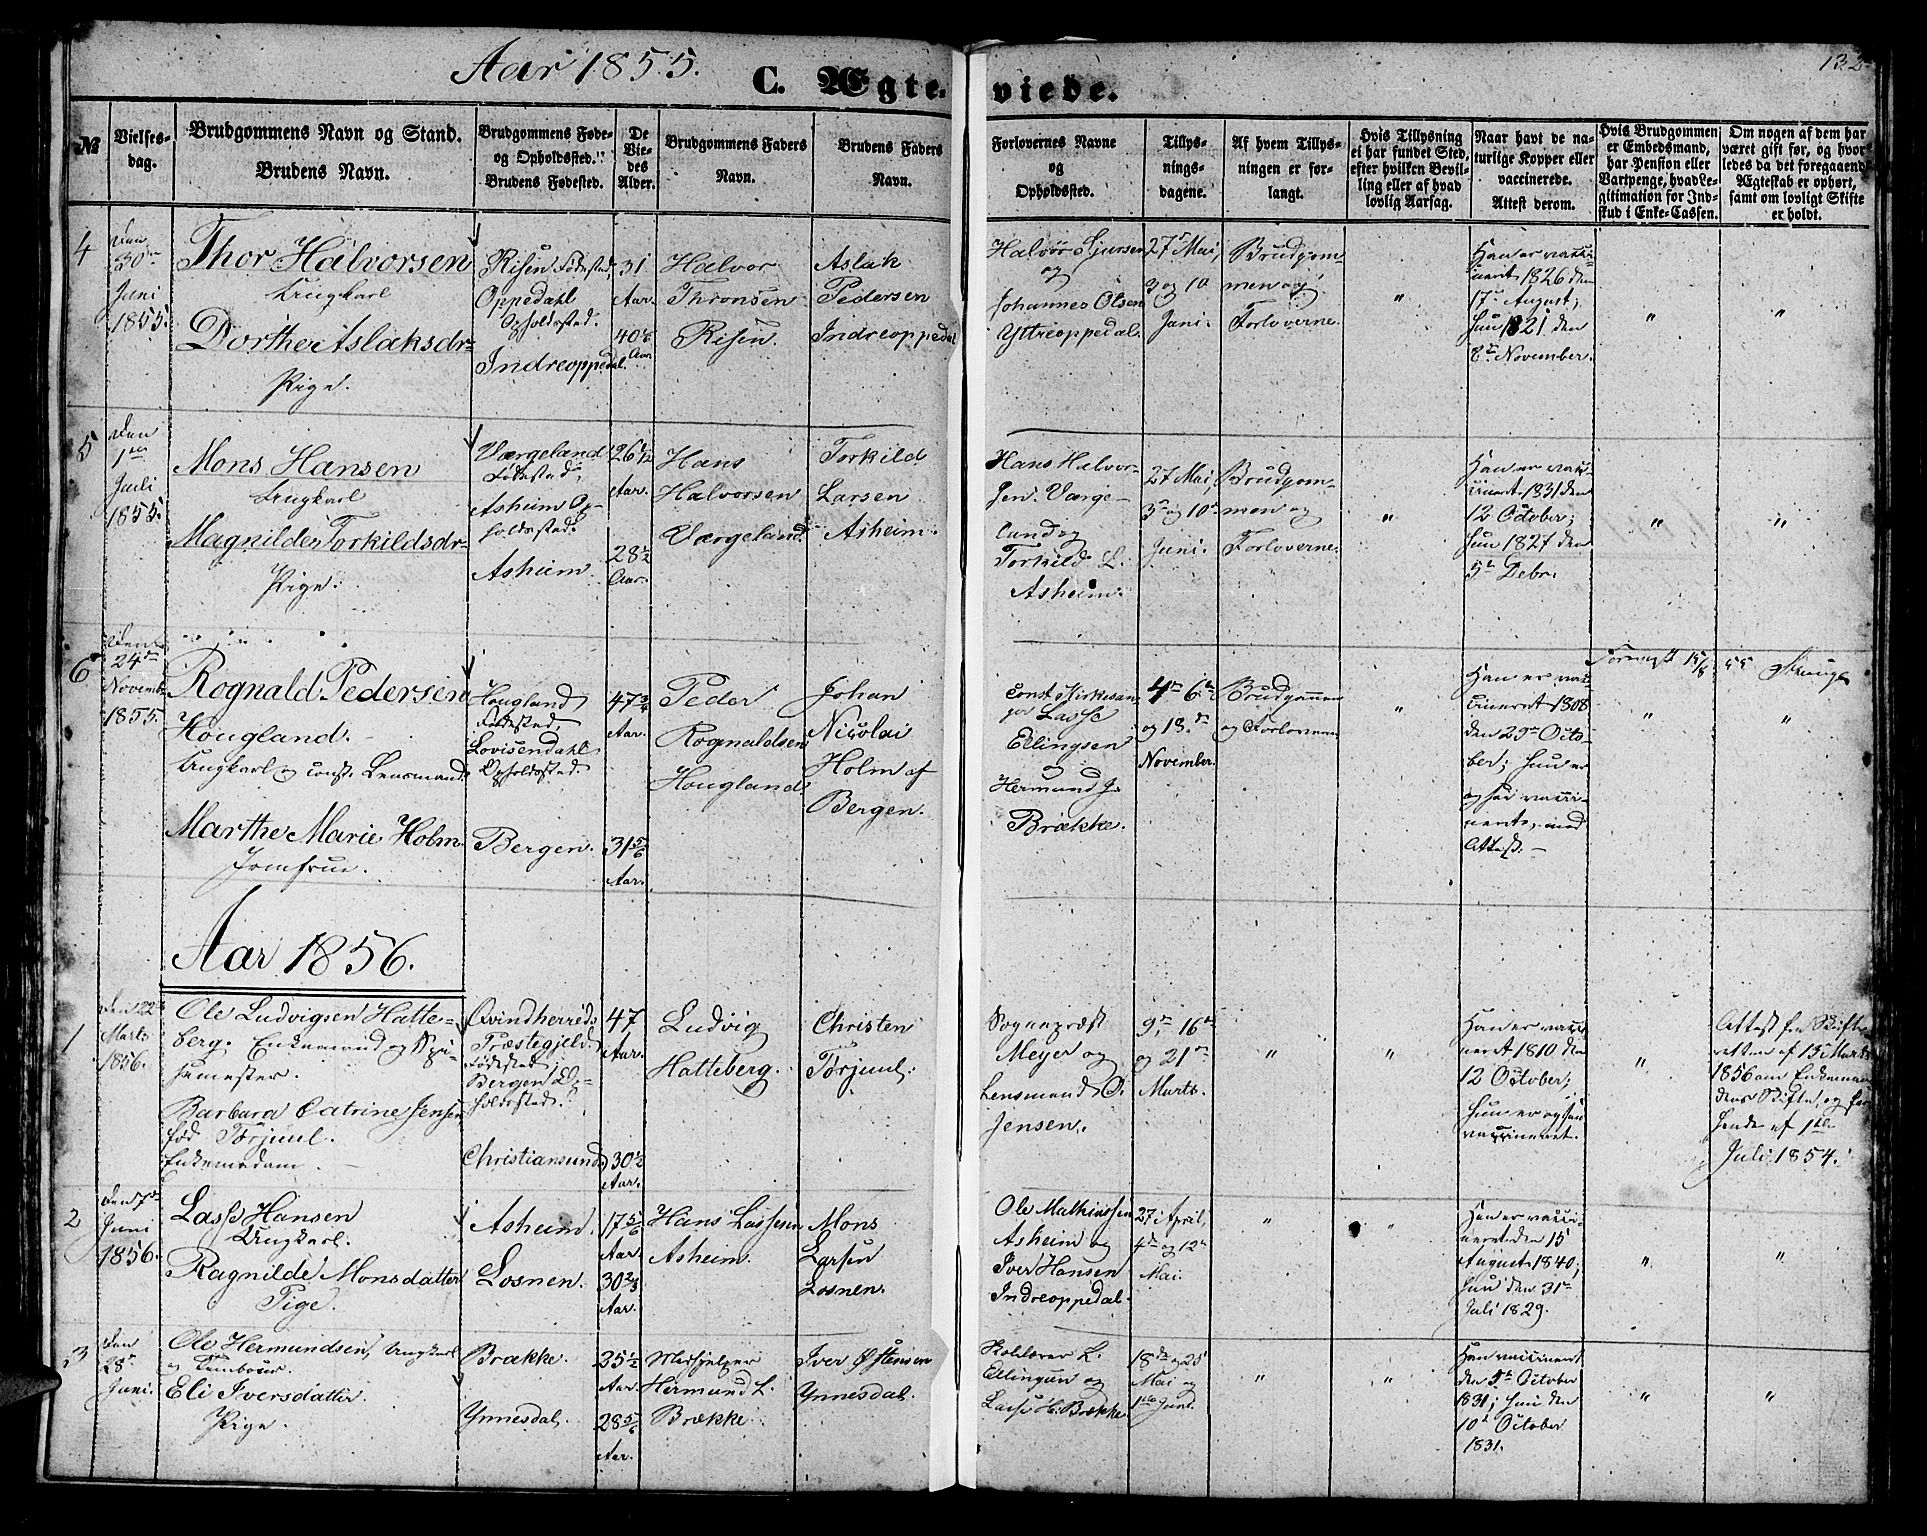 Aar 1855.
C. Ægteviede.
132
№
Vielses-
dag.
Brudgommens Navn og Stand.
Brudens Navn.
Brudgommens Føde-
og Opholdssted.
Brudens Fødested.
De
Vie-
des
Alder.
Brudgommens Faders
Navn.
Brudens Faders
Navn.
Forlovernes Navne
og
Opholdssted.
Tillys-
nings-
dagene.
Af hvem Tillys-
ningen er for-
langt.
Hvis Tillysning
ei har fundet Sted,
efter hvilken Bevil-
ling eller af hvad
lovlig Aarsag.
Naar havt de na-
turlige Kopper eller
vaccinerede.
Attest derom.
Hvis Brudgommen
er Embedsmand,
har Pension eller
Vartpenge, hvad Le-
gitimation for Ind-
skud i Enke-Cassen.
Om nogen af dem har
været gift før, og hvor-
ledes da det foregaaende
Ægteskab er ophørt,
samt om lovligt Skifte
er holdt.
4
Den
30te
Juni
1855.
Thor Halvorsen
Ungkarl
Dorthe Aslaksdr
Pige.
Risen Fødested,
Oppedahl
Opholdssted.
Indreoppedal.
31
Aar.
40
Aar.
Halvor
Thronsen
Risen
Aslak
Pedersen
Indreoppedal
Halvor Sjursen
og
Johannes Olsen
Yttreoppedal.
27de Mai,
3 og 10
Juni.
Brudgom-
men og
Forloverne.
"
Han er vacci-
neret 1826 den
17de August;
Hun 1821 den
2de November.
"
"
5
Den
1ste
Juli
1855.
Mons Hansen
Ungkarl
Magnilde Torkildsdr
Pige.
Værgeland
Fødested,
Asheim Op-
holdssted.
Asheim
26
Aar.
28½
Aar.
Hans
Halvorsen
Værgeland.
Torkild
Larsen
Asheim.
Hans Halvor-
sen Værge-
land og
Torkild L.
Asheim.
27 Mai,
3de og 10de
Juni.
Brudgom-
men og
Forloverne.
"
Han er vacci-
neret 1831 den
12 October;
Hun 1827 den
5te Debr.
"
"
6
Den
24de
Novemb.
1855.
Rognald Pedersen
Hougland.
Ungkarl og const. Lensmand.
Marthe Marie Holm
Jomfrue.
Hougland
Fødested,
Lovisendahl
Opholdssted.
Bergen.
47¾
Aar.
31⅚
Aar.
Peder
Rognaldsen
Hougland
Johan
Nicolai
Holm af
Bergen.
Const. Kirkesan-
ger Lasse
Ellingsen
og
Hermund J.
Brække.
4de 6te
og 18de
November.
Brudgommen
og Forloverne
"
Han er vac-
cineret 1808
den 29de Octo-
ber; Hun er
og saa vacci-
neret, med
Attest.
"
"
Aar 1856.
1
Den 22de
Marts
1856.
Ole Ludvigsen Hatte-
berg. Enkemand og Spi-
semester.
Barbara Catrine Jensen
fød Törjuul.
Enkemadam.
Qvindherreds
Præstegjeld
Fødested,
Bergen Op-
holdssted.
Christiansund
47
Aar.
30½
Aar.
Ludvig
Hatteberg.
Christen
Törjuul.
Sognepræst
Meyer og
Lensmand O.
Jensen.
9de, 16de
og 21de
Marts.
"
"
Han er vacci-
neret 1810 den
12 October;
Hun er ogsaa
vaccineret.
"
Attest fra Skifte-
retten af 15 Marts
1856 om Enkeman-
dens Skifte, og for
hende af 1ste
Juli 1854.
2
Den 7de
Juni
1856.
Lasse Hansen
Ungkarl.
Ragnilde Monsdatter
Pige.
Asheim.
Losnen.
17⅚
Aar.
30⅔
Aar.
Hans Lassesen
Asheim.
Mons
Larsen
Losnen.
Ole Mathiassen
Asheim og
Iver Hansen
Indreoppedal.
27 April,
4de og 12te
Mai.
"
"
Han er vacci-
neret den 15
August 1840;
Hun den 31te
Juli 1829.
"
"
3
Den
28de
Juni.
Ole Hermundsen, Ungkarl
og Tambour.
Eli Iversdatter
Pige.
Brække.
Ynnesdal.
25½
Aar.
28⅚
Aar.
Medhjelper
Hermund L.
Brække.
Iver Østensen
Ynnesdal.
Ellingsen og
Lasse H. Brække.
18de og 25
Mai og
1ste Juni.
"
"
Han vaccineret
den 5te October
1831; Hun den
10de October
1831.
"
"